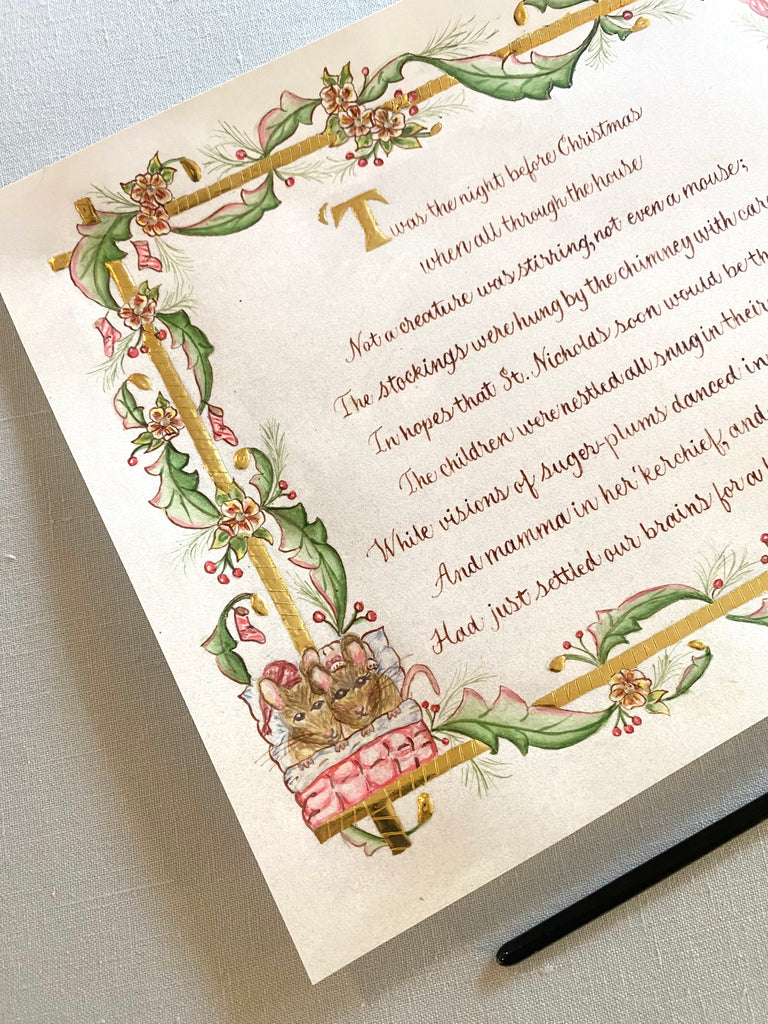 'Twas the night before Christmas
when all through the house
Not a creature was stirring, not even a mouse;
The stockings were hung by the chimney with care
In hopes that St. Nicholas soon would be th
The children were nestled all snug in their
While visions of suger-plums danced in
And mamma in her 'kerchief, and
Had just settled our brains for a